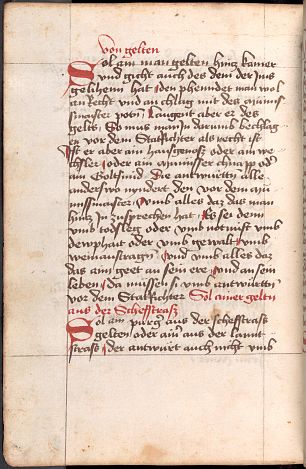 von gelten
Sol ain man gelten hintz kamer
vnd gicht auch des dem der Jns
gelihenn hat den phendet man wol
an Recht vnd an chlag mit des munss
maister poten Laugent aber er des
gelts So mus man Jn darumb bechlag
en vor dem Statrichter als recht ist
Jst er aber ain hausgenoss oder ain we
chssler oder ain munsser chnapp oder
ain Goltsmid Die antwurtn alle
anderswo nyndert den vor dem mu
nssmaister vmb alles daz das man
hintz Jn zusprechen hat Es sei denn
vmb todsleg oder vmb notnuft vmb
dewphait oder vmb gewalt vmb
vnd alles daz
das ain geet an sein ere vnd an sein
leben Da mussen si vmb antwurttn
vor dem Statrichter Sol ainer geltn
aus der Scheffstrass
Sol ain purger aus der scheffstrass
gelten oder ainer aus der lannt
strass der antwurt auch nicht vmb